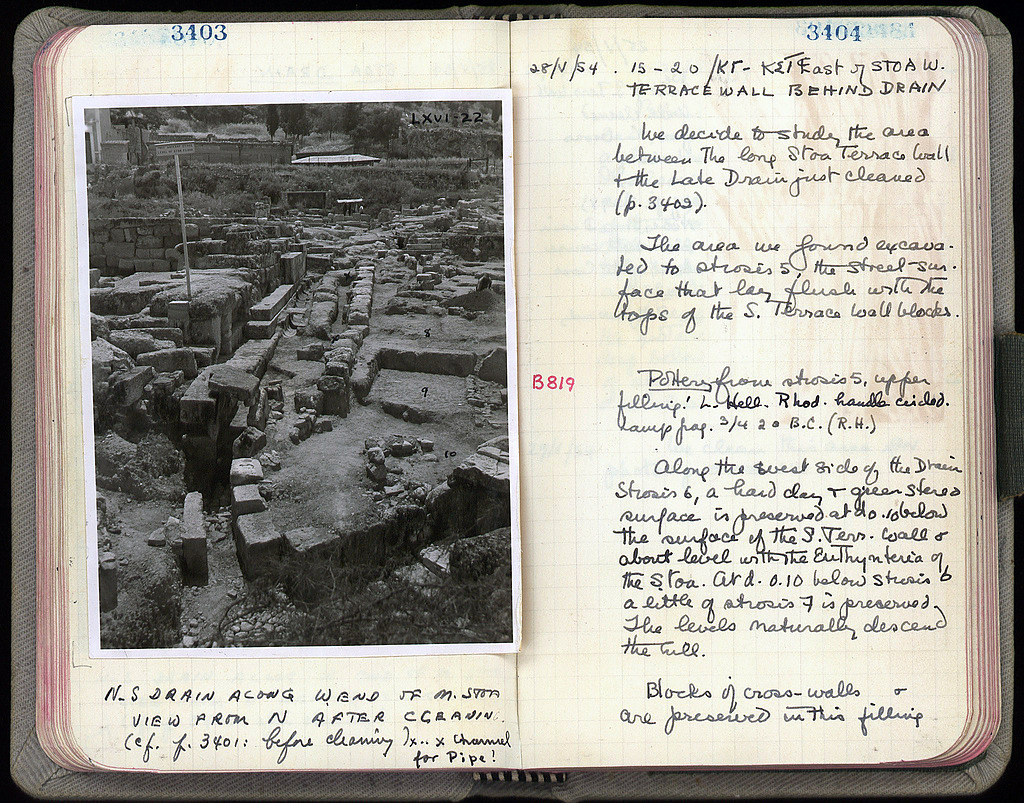 3403
LXVI-22
8
9
10
N-S DRAIN ALONG W. END OF M. STOA
VIEW FROM N AFTER CLEANING
(cf. p. 3401: before cleaning) x..x Channel
for Pipe!
3404
28/V/54. 15-20/ East of STOA W.
TERRACE WALL BEHIND DRAIN
We decide to study the area
between The long Stoa Terrace Wall
+ the Late Drain just cleaned
(p. 3402).
The area we found excava-
ted to strosis 5, the street sur-
face that lay flush with the
tops of the S. Terrace wall blocks.
B819
Pottery from strosis 5, upper
filling: L. Hell. Rhod. handle
Lamp frag. 3/4 20 B.C. (R.H.)
Along the west side of the Drain
Strosis 6, a hard clay + green stereo
surface is preserved at d 0.10 below
the surface of the S. Terr. Wall &
about level with the Euthynteria of
the Stoa. At d. 0.10 below strosis 6
a little of strosis 7 is preserved.
The levels naturally descend
the hill.
Blocks of cross-walls
are preserved in this filling